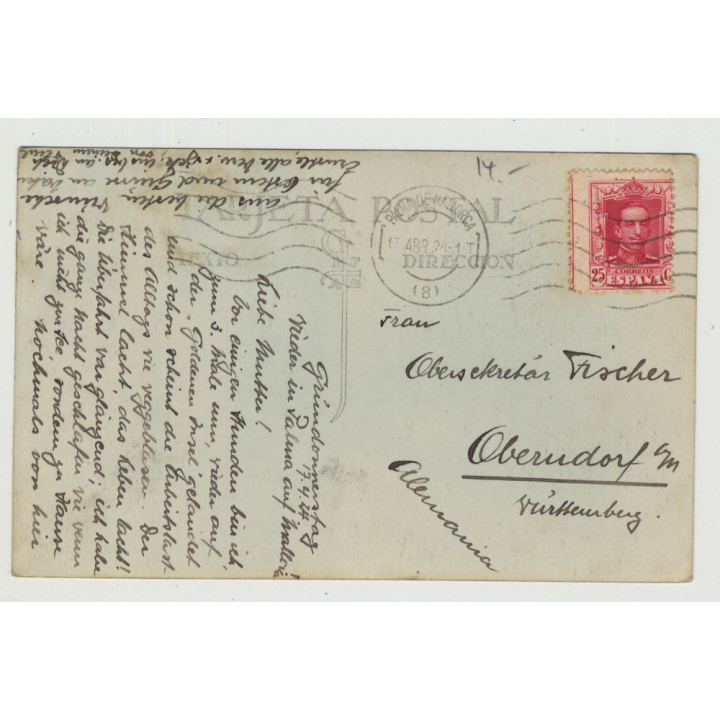 14.-
TARJETA POSTAL
TEXTO
DIRECCIÓN
PALMA DE MALLORCA
17 ABR 24-1 T
(8)
25 CORREOS
ESPAÑA
Frau
Obersekretär Fischer
Oberndorf a/N
Württemberg.
Alemania
Gründonnerstag
17.4.24
Wieder in Palma auf Mallorca!
Liebe Mutter!
Vor einigen Stunden bin ich
zum 3. Male nun, wieder auf
der "Goldenen Insel" gelandet
und schon scheint die Arbeitslast
des Alltags wie weggeblasen. Der
Himmel lacht, das Leben lacht!!
Die Überfahrt war glänzend; ich habe
die ganze Nacht geschlafen wie wenn
ich nicht zur See, sondern zu Hause
wäre. Nochmals von hier
aus die besten Wünsche
für Ostern und Grüsse an
alle
von Deinem